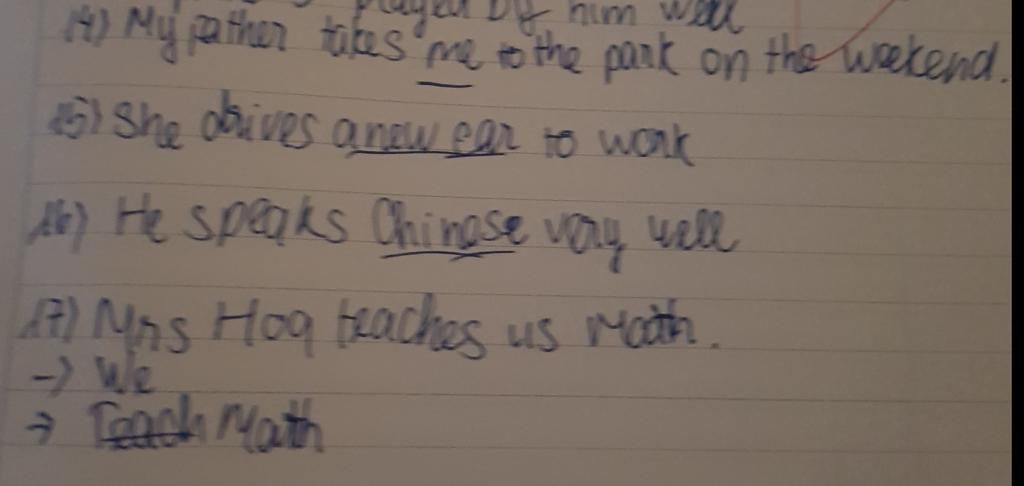 played by him well
14) My father takes me to the park on the weekend.
15) She drives a new car to work
16) He speaks Chinese very well
17) Mrs Hoa teaches us Math.
-> We
-> Teach Math